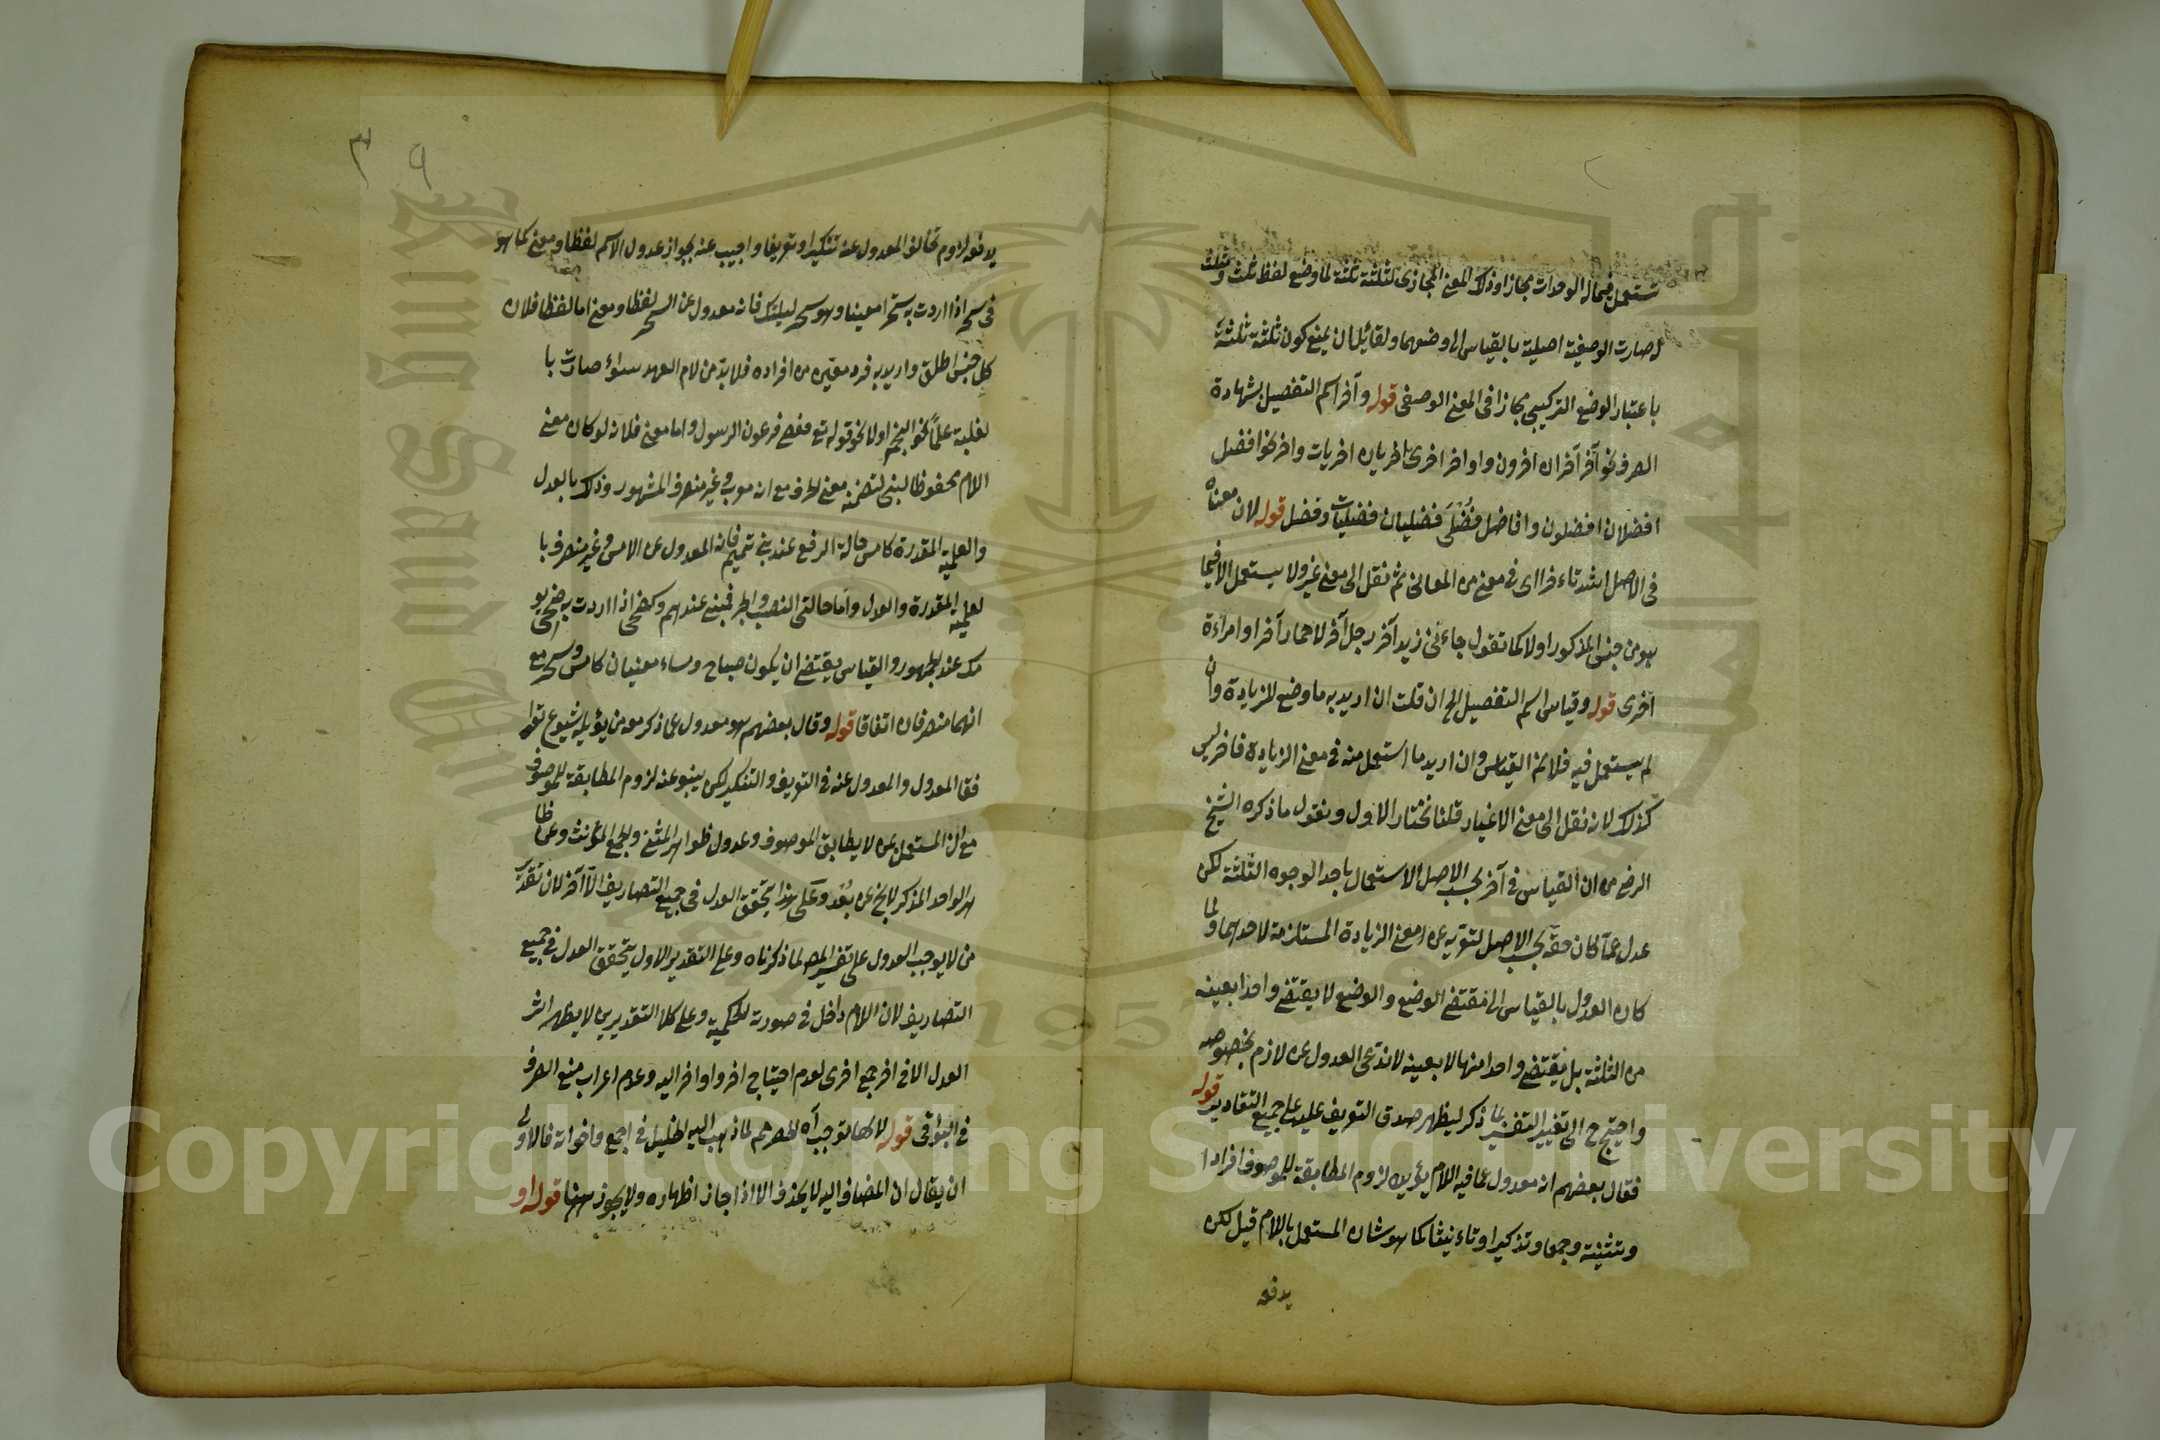 تستعمل فيما له الوحدات مجازا وذلك المعنى المجازى لثلثة ثلثة لما وضع لفظ ثلث ومثلث
له صارت الوصفية اصلية بالقياس الى وضعهما ولقائل ان يمنع كون ثلثة ثلثة
باعتبار الوضع التركيبى مجازا فى المعنى الوصفى قوله وآخر اسم التفضيل بشهادة
الصرف نحو آخر آخران آخرون واواخر اخرى اخريان اخريات واخر نحو افضل
افضلان افضلون وافاضل فضلى فضليان فضليات وفضل قوله لان معناه
فى الاصل اشد تاخرا اى فى معنى من المعانى ثم نقل الى معنى غير ولا يستعمل الا فيما
هو من جنس المذكور اولا كما تقول جاءنى زيد آخر رجل آخر لا حمار آخر او امراءة
اخرى قوله وقياس اسم التفضيل الخ ان قلت ان اريد به ما وضع للزيادة وان
لم يستعمل فيه فلا نم القياس وان اريد ما استعمل منه فى معنى الزيادة فاخر ليس
كذلك لانه نقل الى معنى الاغيار قلنا نختار الاول ونقول ما ذكره الشيخ
الرضى من ان القياس فى آخر بحسب الاصل الاستعمال باحد الوجوه الثلثة لكن
عدل عما كان حقه بحسب الاصل لتعريه عن معنى الزيادة المستلزمة لاحدها ولما
كان العدول بالقياس الى مقتضى الوضع والوضع لا يقتضى واحدا بعينه
من الثلثة بل يقتضى واحدا منها لا بعينه لا ندعى العدول عن لازم بخصوصه
واحتيج ح الى تغيير التفسير لما ذكر ليظهر صدق التعريف عليه على جميع التقادير قوله
فقال بعضهم انه معدول عما فيه اللام يؤيده لزوم المطابقة للموصوف افرادا
وتثنية وجمعا وتذكيرا وتاءنيثا كما هو شان المستعمل باللام قيل لكن
يدفعه
٣٩
يدفعه لزوم تخالف المعدول عنه تنكيرا وتعريفا واجيب عنه بجواز عدول الاسم لفظا ومعنى كما هو
فى سحر اذا اردت به سحرا معينا وهو سحر ليلتك فانه معدول عن السحر لفظا ومعنى اما لفظا فلان
كل جنس اطلق واريد به فرد معين من افراده فلا بد من لام العهد سواء صارت با
لغلبة علما نحو النجم اولا نحو قوله تع فعصى فرعون الرسول واما معنى فلانه لو كان معنى
اللام محفوظا لبنى لتضمنه معنى الحرف مع انه معرب غير منصرف المشهور وذلك بالعدل
والعلمية المقدرة كامس حالة الرفع عند بنى تميم فانه المعدول عن الامس غير منصرف با
لعلمية المقدرة والعدل واما حالتى النصب والجر فبنى عندهم وكضحى اذا اردت به ضحى يو
مك عند الجمهور والقياس يقتضى ان يكون صباح ومساء معنيان كامس وسحر مع
انهما منصرفان اتفاقا قوله وقال بعضهم هو معدول عما ذكر معه من يؤيله شيوع توا
فق المعدول والمعدول عنه فى التعريف والتنكير لكن ينبو عنه لزوم المطابقة للموصوف
مع ان المستعمل بمن لا يطابق الموصوف وعدول ظواهر المثنى والجمع المؤنث وعن ظا
هر الواحد المذكر لا يخ عن بعد وعلى هذا يتحقق العدل فى جميع التصاريف الا آخر لان تقدير
من لا يوجب العدول على تفسير المص لما ذكرناه وعلى التقدير الاول يتحقق العدل فى جميع
التصاريف لان اللام داخل فى صورته الحكمية وعلى كلا التقديرين لا يظهر اثر
العدل الا فى اخر جمع اخرى لعدم احتياج اخر واواخر اليه وعدم اعراب منع الصرف
فى البواقى قوله لانها توجب آه الحصر هم لما ذهب اليه الخليل فى اجمع واخواته فالاولى
ان يقال ان المضاف اليه لا يحذف الا اذا جاز اظهاره ولا يجوز ههنا قوله او
Copyright © King Saud University
1957